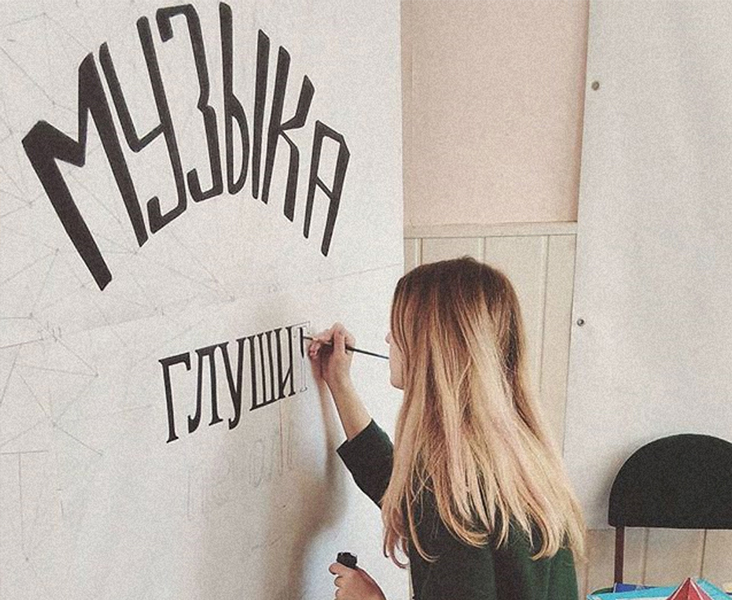 МУЗЫКА
ГЛУШИТ